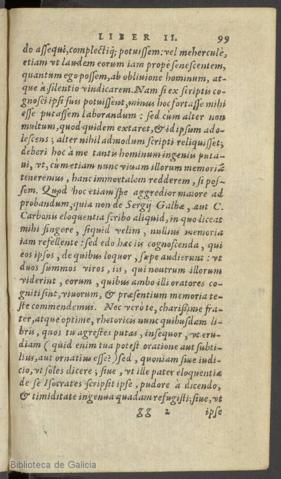 LIBER II. 99
do assequi, complectiq́; potuissem: vel mehercule,
etiam vt laudem eorum iam propè senescentem,
quantum ego possem, ab obliuione hominum, at-
que à silentio vindicarem. Nam si ex scriptis co-
gnosci ipsi suis potuissent, minus hoc fortasse mihi
esse putassem laborandum: sed cum alter non
multum, quod quidem extaret, & id ipsum ado-
lescens; alter nihil admodum scripti reliquisset;
deberi hoc à me tantis hominum ingenijs puta-
ui, vt, cùm etiam nunc viuam illorum memoriā
teneremus, hanc immortalem redderem, si pos-
sem. Quod hoc etiam spe aggredior maiore ad
probandum, quia non de Sergij Galbæ, aut C.
Carbonis eloquentia scribo aliquid, in quo liceat
mihi fingere, siquid velim, nullius memoria
iam refellente: sed edo hæc ijs cognoscenda, qui
eos ipsos, de quibus loquor, sæpe audierunt: vt
duos summos viros, ijs, qui neutrum illorum
viderint, eorum, quibus ambo illi oratores co-
gniti sint, viuorum, & præsentium memoria te-
ste commendemus. Nec verò te, charissime fra-
ter, atque optime, rhetoricis nunc quibusdam li-
bris, quos tu agrestes putas, insequor, vt eru-
diam (quid enim tua potest oratione aut subti-
lius, aut ornatius esse?) sed, quoniam siue iudi-
cio, vt soles dicere; siue, vt ille pater eloquentiæ
de se Isocrates scripsit ipse, pudore à dicendo,
& timiditate ingenua quadam refugisti; siue, vt
gg 2 ipse
Biblioteca de Galicia